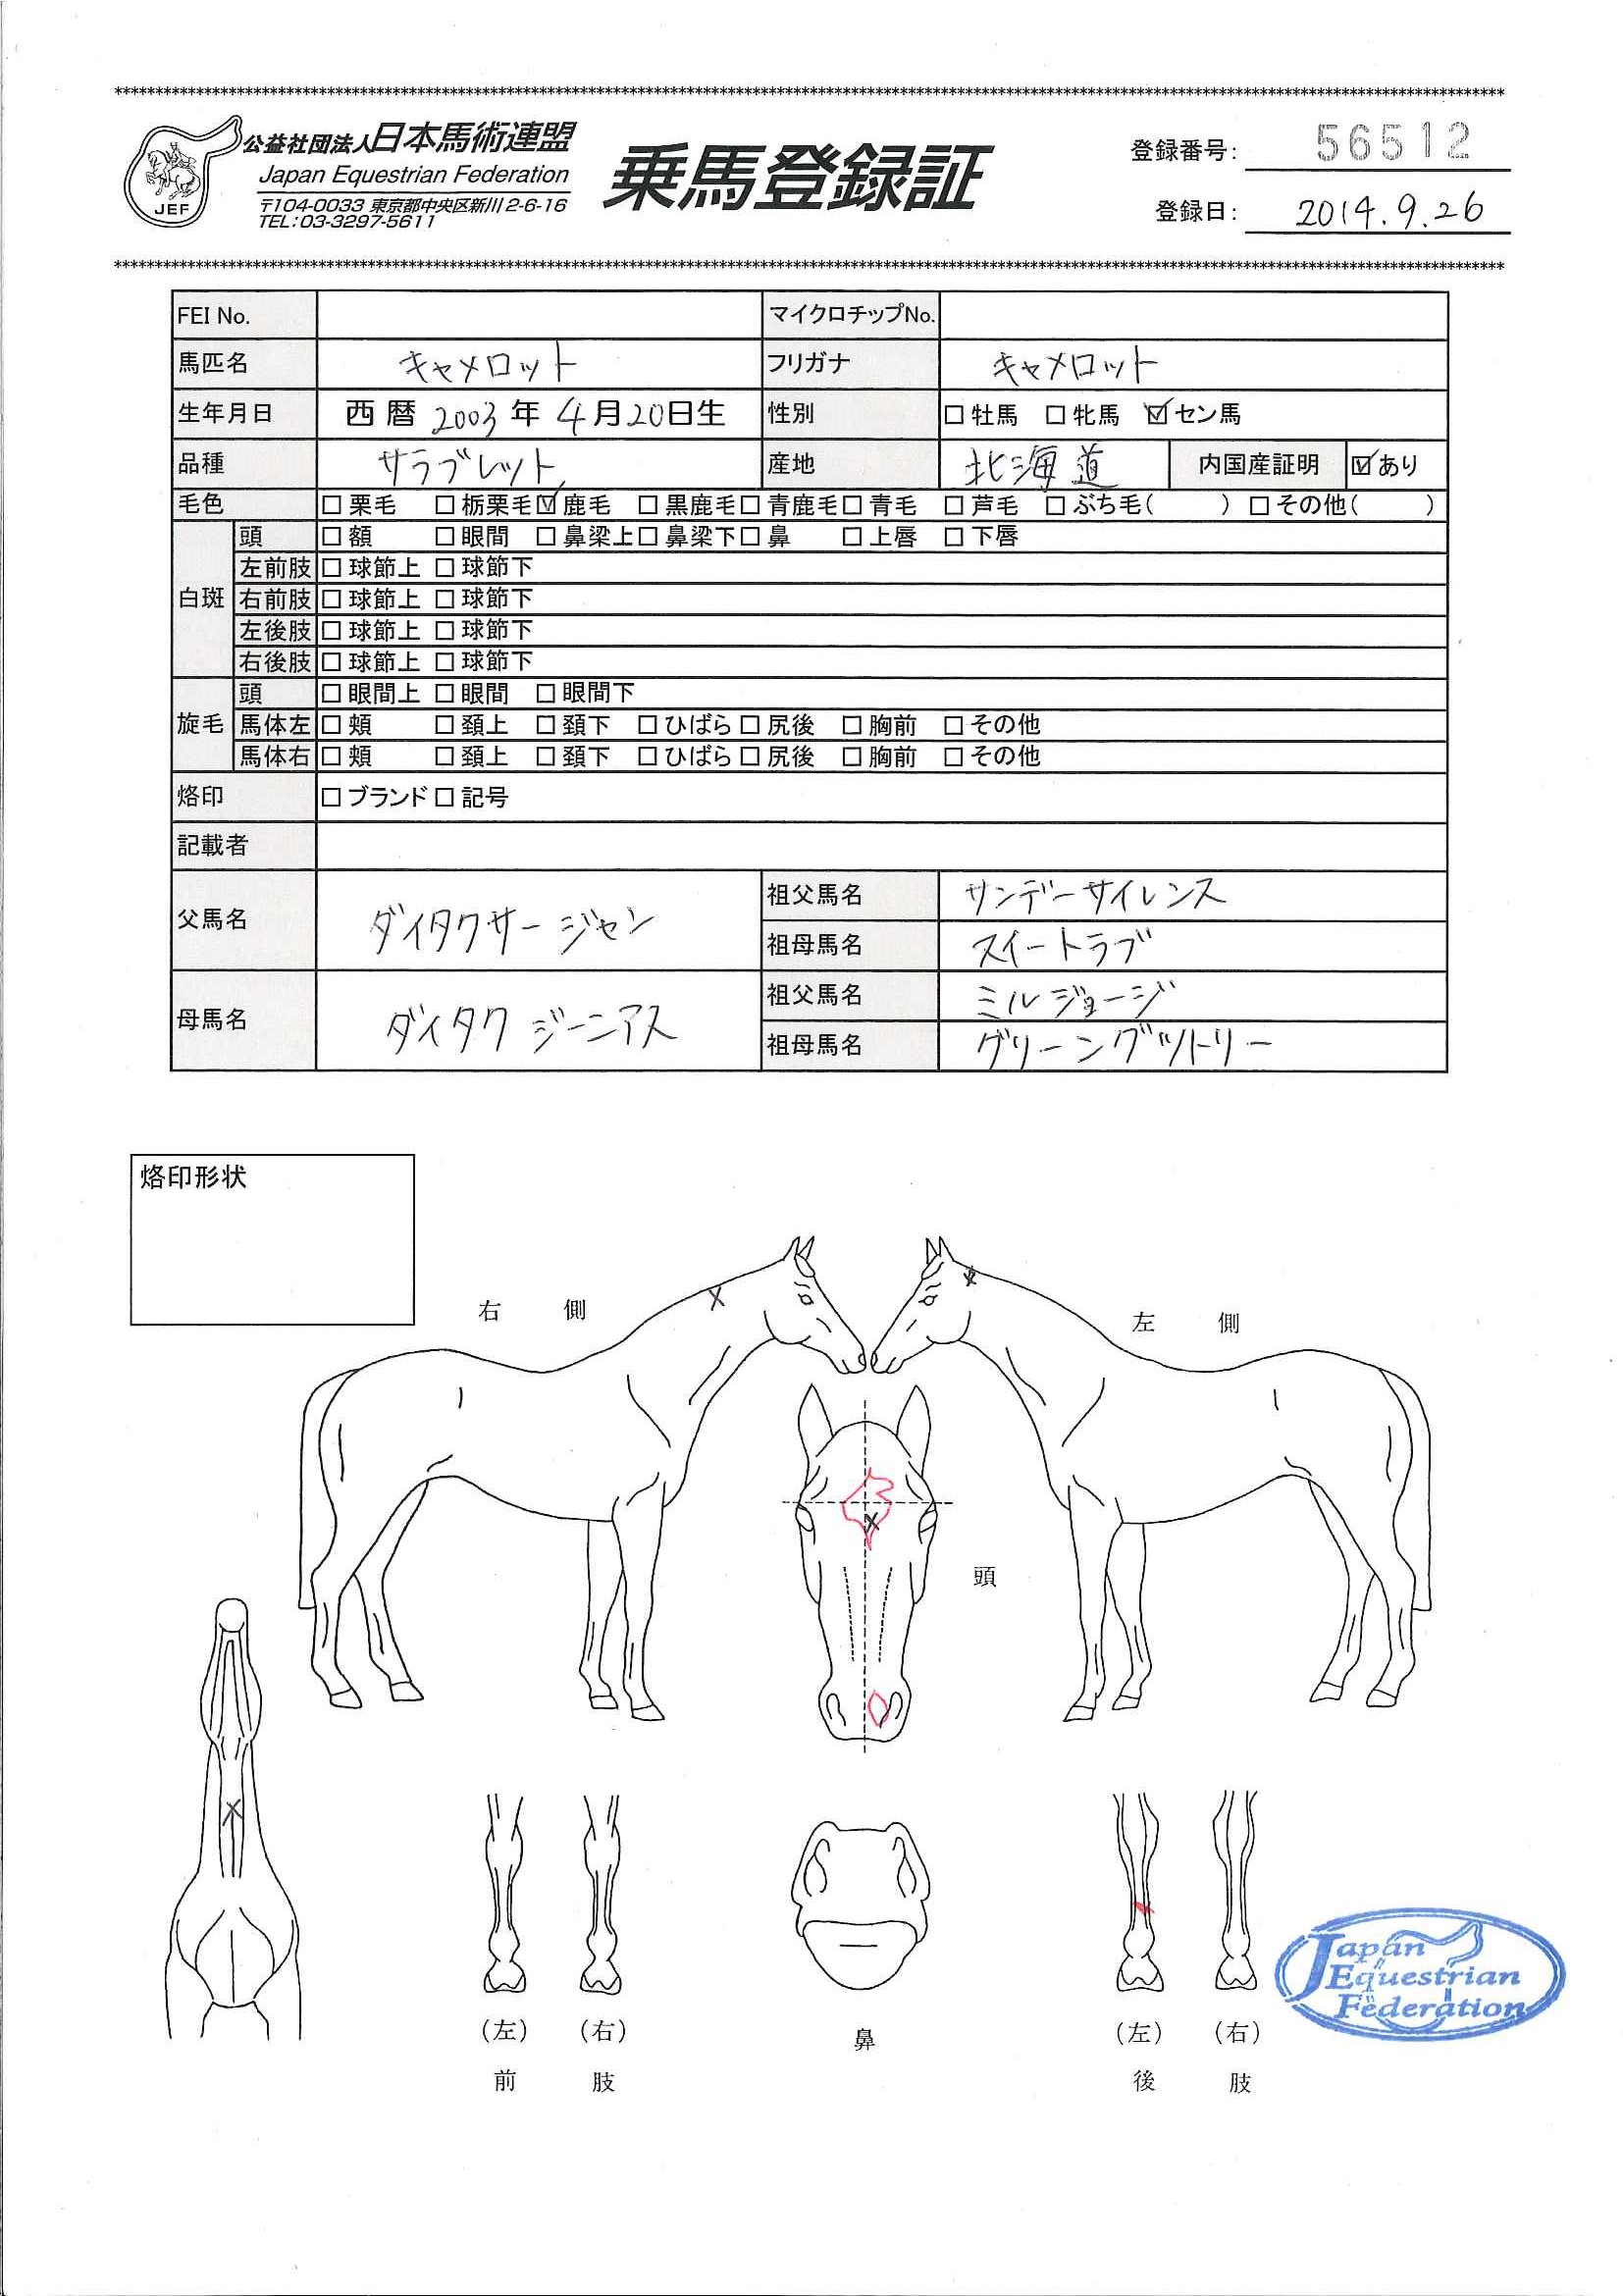 ************************************************************
公益社団法人日本馬術連盟
Japan Equestrian Federation
〒104-0033 東京都中央区新川2-6-16
TEL:03-3297-5611
JEF
乗馬登録証
登録番号: 56512
登録日: 2014.9.26
************************************************************
FEI No. マイクロチップNo.
馬匹名 キャメロット フリガナ キャメロット
生年月日 西暦 2003年 4月20日生 性別 □ 牡馬 □ 牝馬 ☑ セン馬
品種 サラブレット 産地 北海道 内国産証明 ☑ あり
毛色 □ 栗毛 □ 栃栗毛 ☑ 鹿毛 □ 黒鹿毛 □ 青鹿毛 □ 青毛 □ 芦毛 □ ぶち毛( ) □ その他( )
白斑 頭 □ 額 □ 眼間 □ 鼻梁上 □ 鼻梁下 □ 鼻 □ 上唇 □ 下唇
左前肢 □ 球節上 □ 球節下
右前肢 □ 球節上 □ 球節下
左後肢 □ 球節上 □ 球節下
右後肢 □ 球節上 □ 球節下
旋毛 頭 □ 眼間上 □ 眼間 □ 眼間下
馬体左 □ 頬 □ 頚上 □ 頚下 □ ひばら □ 尻後 □ 胸前 □ その他
馬体右 □ 頬 □ 頚上 □ 頚下 □ ひばら □ 尻後 □ 胸前 □ その他
烙印 □ ブランド □ 記号
記載者
父馬名 ダイタクサージャン 祖父馬名 サンデーサイレンス
祖母馬名 スイートラブ
母馬名 ダイタクジーニアス 祖父馬名 ミルジョージ
祖母馬名 グリーングツトリー
烙印形状
右 側
左 側
頭
(左) (右)
前 肢
鼻
(左) (右)
後 肢
Japan
Equestrian
Federation